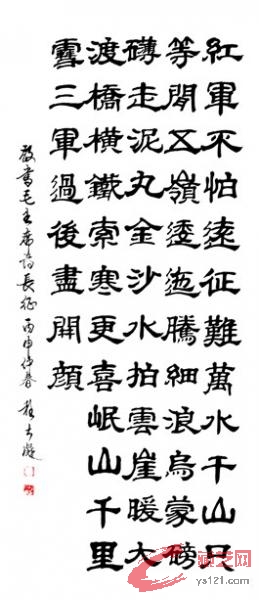 紅軍不怕遠征難萬水千山只
等閒五嶺逶迤騰細浪烏蒙磅
礴走泥丸金沙水拍雲崖暖大
渡橋橫鐵索寒更喜岷山千里
雪三軍過後盡開顏
敬書毛主席詩長征 丙申仲春
演艺网
ys121.com